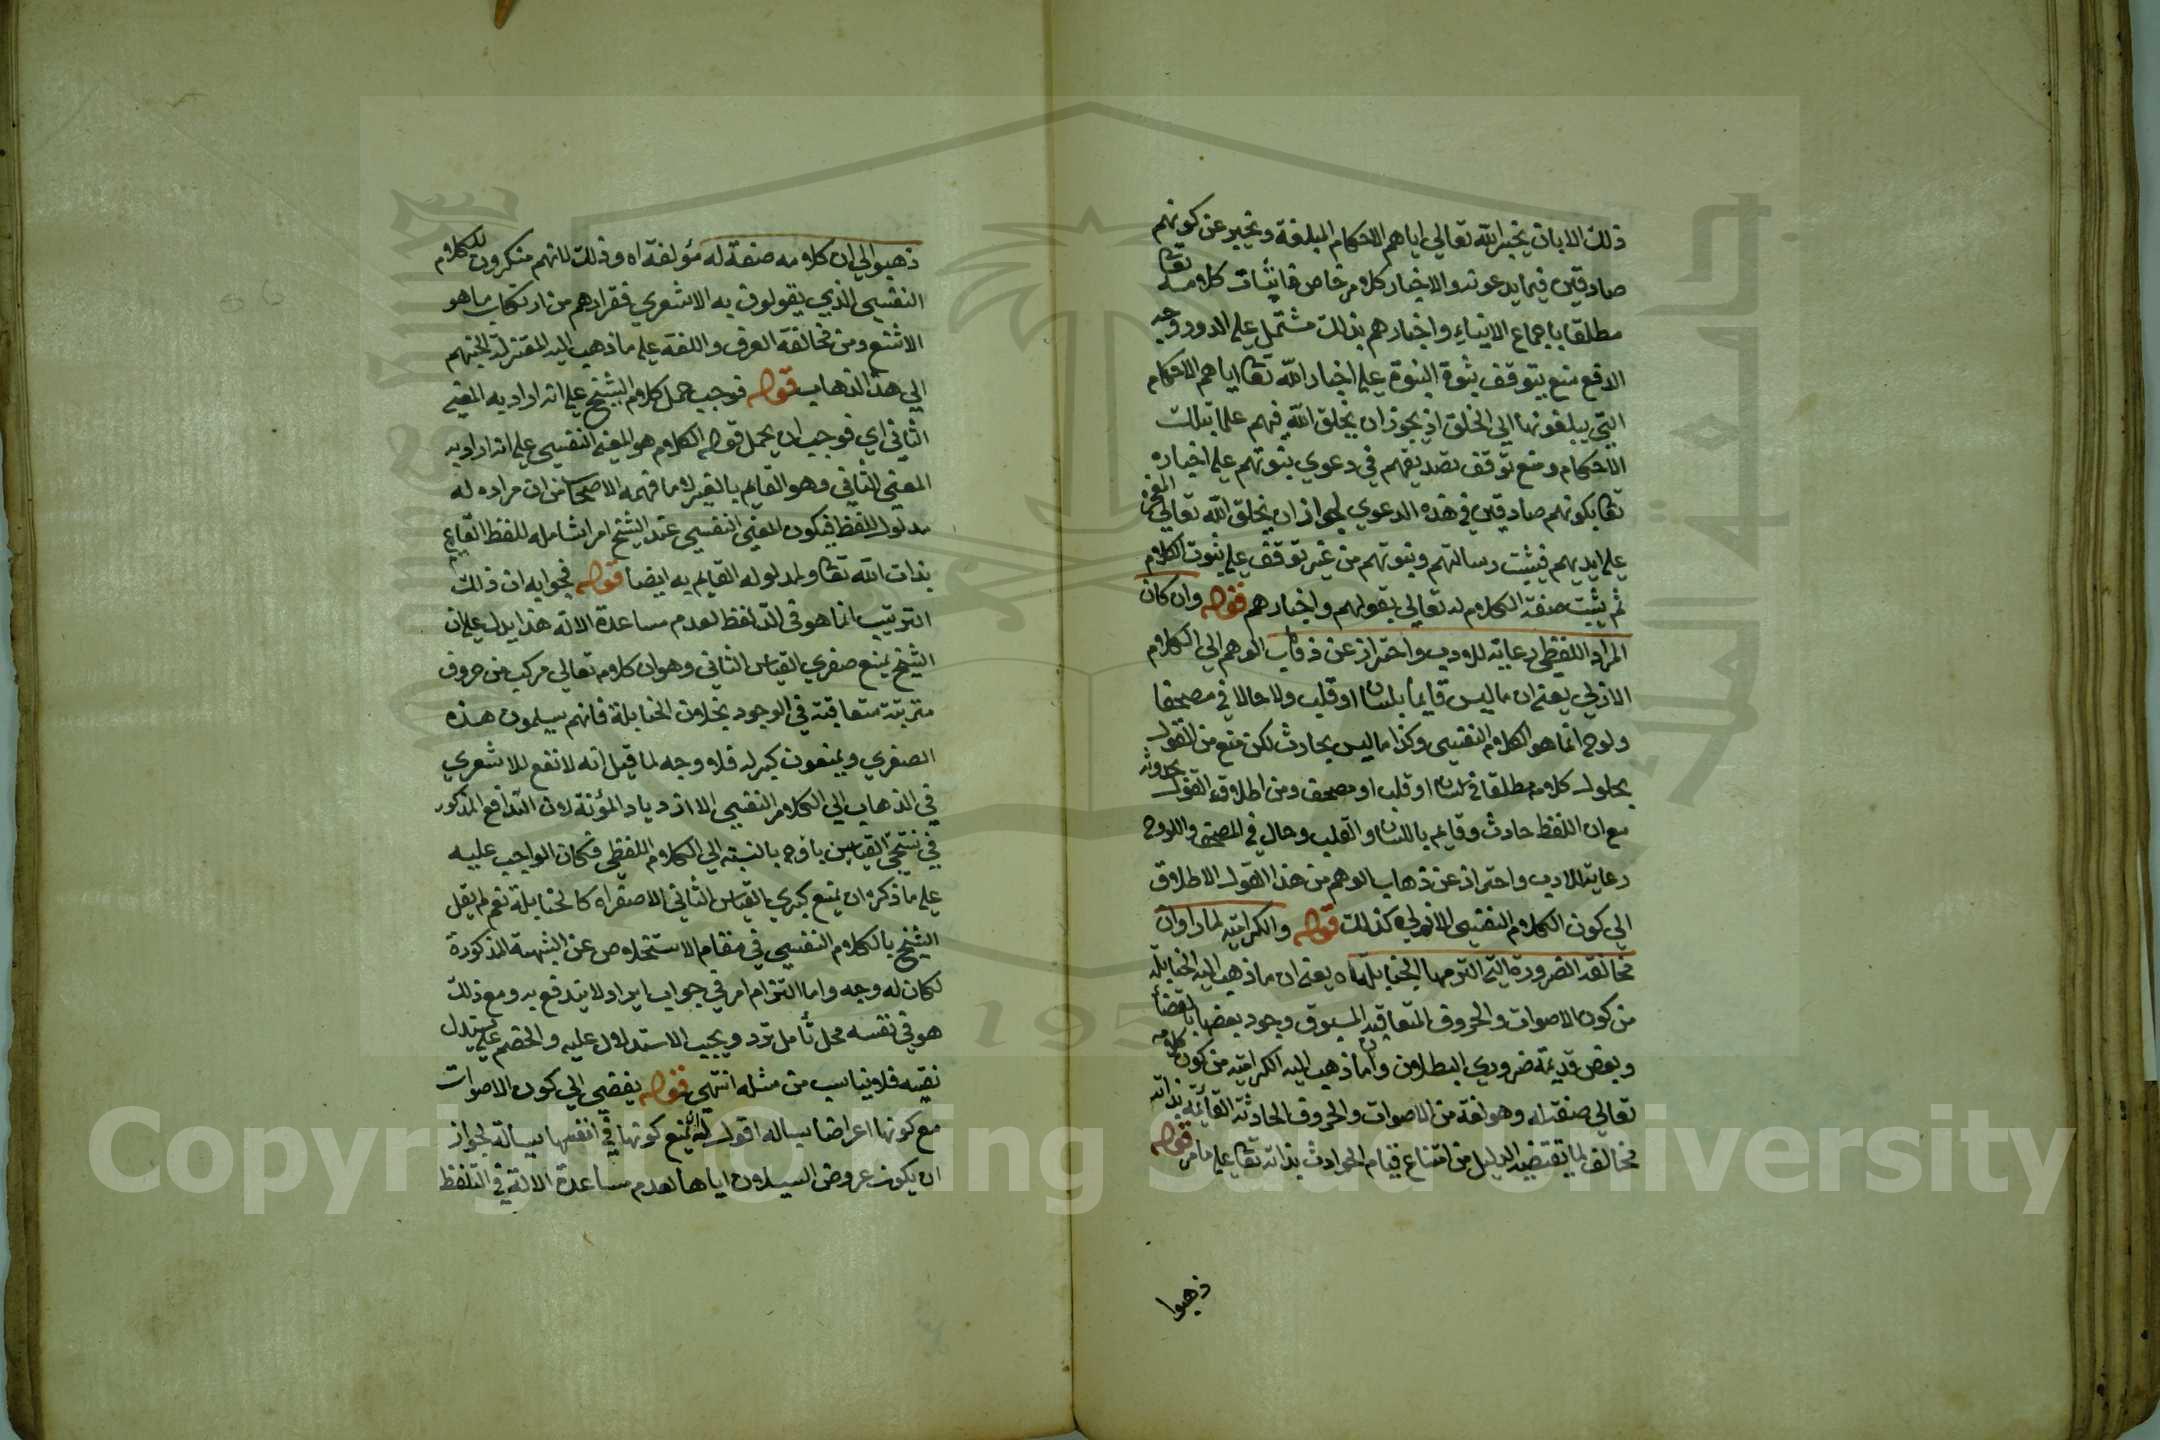 ذلك الا بان يخبر الله تعالى اياهم الاحكام المبلغة ويخبر عن كونهم
صادقين فيما يدعونه والاخبار كلام خاص فاثبات كلامه تعا
مطلقا باجماع الانبياء واخبارهم بذلك مشتمل على الدور ووجه
الدفع منع يتوقف ثبوة النبوة على اخبار الله تعا اياهم الاحكام
التي يبلغونها الى الخلق اذ يجوز ان يخلق الله فيهم علما بتلك
الاحكام ومنع توقف تصديقهم في دعوى نبوتهم على اخباره
تعا بكونهم صادقين في هذه الدعوي لجواز ان يخلق الله تعالى المعجزة
على ايديهم فيثبت رسالتهم ونبوتهم من غير توقف على ثبوت الكلام
ثم يثبت صفة الكلام له تعالى بقولهم واخبارهم قوله وان كان
المراد اللفظي رعاية للادب واحتراز عن ذهاب الوهم الى الكلام
الازلي يعني ان ما ليس قايما بلسان او قلب ولا حالا في مصحف
ولوح انما هو الكلام النفسي وكذا ما ليس بحادث لكن منع من القول
بحلول كلامه مطلقا في لسان او قلب او مصحف ومن اطلاق القول بحدوثه
مع ان اللفظ حادث وقايم باللسان او القلب وحال في المصحف واللوح
رعاية للادب واحتراز عن ذهاب الوهم من هذا القول الاطلاق
الى كون الكلام النفسي الازلي كذلك قوله والكرامية لما راوا ان
مخالفة الضرورة التي التزمها الحنابلة اه يعني ان ما ذهب اليه الحنابلة
من كون الاصوات والحروف المتعاقبة المسبوق وجود بعضها بانقضاء
وبعض قديمة ضروري البطلان وان ما ذهب اليه الكرامية من كون كلامه
تعالى صفة له وهو لفة من الاصوات والحروف الحادثة القائمة بذاته
مخالف لما يقتضيه الدليل من امتناع قيام الحوادث بذاته تعا على ما مر قوله
ذهبوا
ذهبوا الى ان كلامه صفة له مؤلفة اه وذلك لانهم منكرون للكلام
النفسي الذي يقولون به الاشعري ففرارهم من ارتكاب ما هو
الاشنع ومن مخالفة العرف واللغة على ما ذهب اليه المعتزلة الجئهم
الى هذا الذهاب قوله فوجب حمل كلام الشيخ على انه اراد به المعنى
الثاني اي فوجب ان يحمل قوله الكلام هو المعنى النفسي على انه اراد به
المعنى الثاني وهو القايم بالغير لا ما فهمه الاصحاب من ان مراده له
مدلول اللفظ فيكون المعنى النفسي عند الشيخ امرا شاملا للفظ القايم
بذات الله تعا ولمدلوله القايم به ايضا قوله فجوابه ان ذلك
الترتيب انما هو في التلفظ لعدم مساعدة الالة هذا يدل على ان
الشيخ يمنع صغرى القياس الثاني وهو ان كلامه تعالى مركب من حروف
مترتبة متعاقبة في الوجود بخلاف الحنابلة فانهم يسلمون هذه
الصغري ويمنعون كبراه فلا وجه لما قيل انه لا نفع للاشعري
في الذهاب الى الكلام النفسي الا ازدياد المؤنة لان التدافع المذكور
في نتيجتي القياسين باق بالنسبة الى الكلام اللفظي فكان الواجب عليه
على ما ذكره ان يمنع كبرى القياس الثاني الاصغراه كالحنابلة نعم لم يقل
الشيخ بالكلام النفسي في مقام الاستخلاص عن الشبهة المذكورة
لكان له وجه واما التزام امر في جواب ايراد لا يندفع به ومع ذلك
هو في نفسه محل تأمل ترد ويجب الاستدلال عليه والخصم يستدل على
نفيه فلا يناسب من مثله انتهى قوله يفضي الى كون الاصوات
مع كونها اعراضا سيالة اقول له ان يمنع كونها في انفسها سيالة لجواز
ان يكون عروض السيلان اياها لعدم مساعدة الالة في التلفظ
Copyright © King Saud University
جامعة الملك سعود
King Saud University
1957